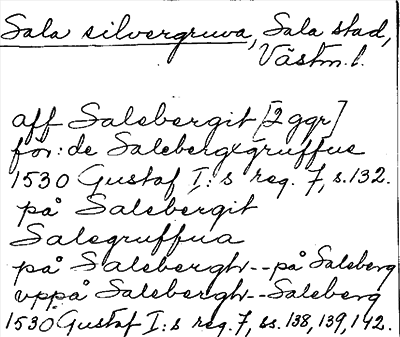 Sala silvergruva, Sala stad,
Västm. l.
aff Salebergit [2 ggr]
för: de Salebergxgruffue
1530 Gustaf I:s reg. 7, s. 132.
på Salebergit
Salegruffua
på Salebergh--på Saleberg
vppå Salebergh--Saleberg
1530 Gustaf I:s reg. 7, ss. 138, 139, 142.